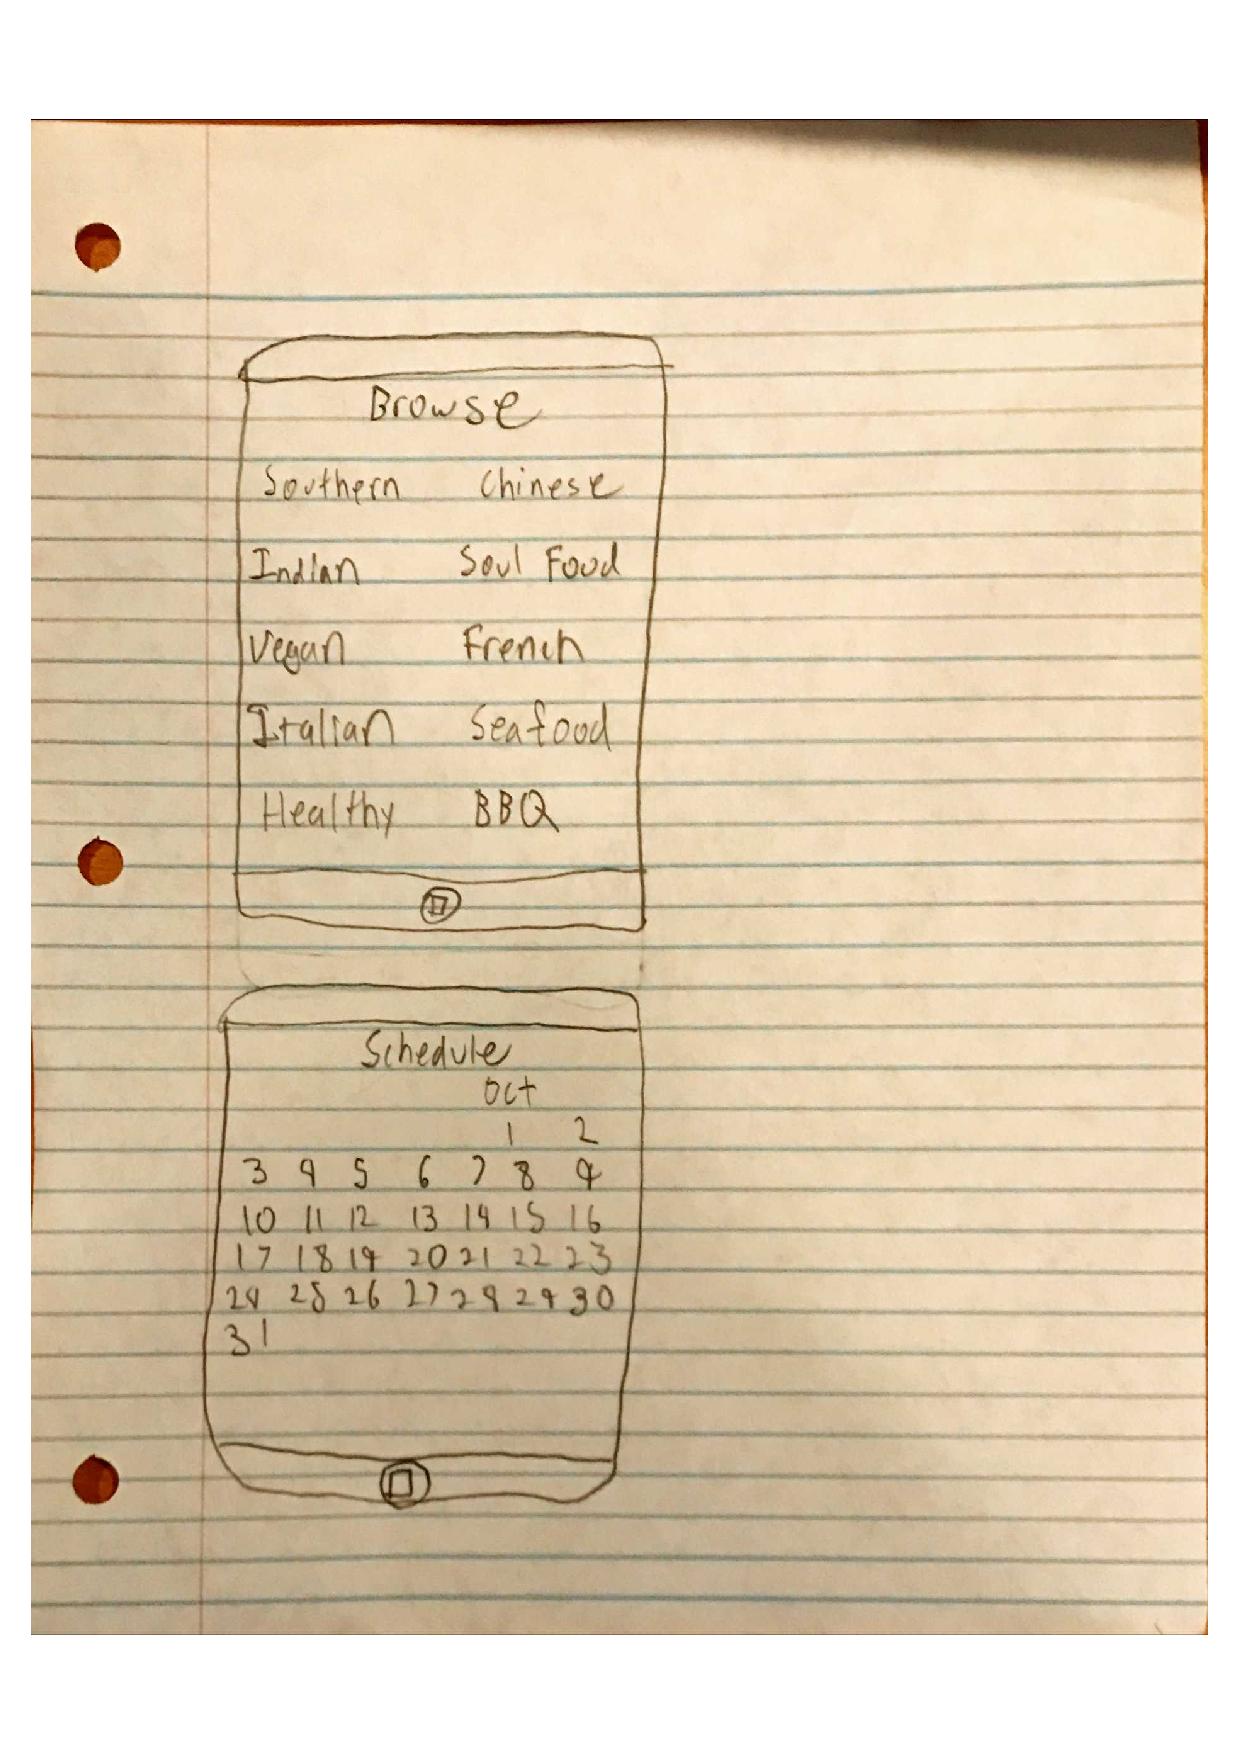 Browse
Southern Chinese
Indian Soul Food
Vegan French
Italian Seafood
Healthy BBQ
Schedule
Oct
1 2
3 4 5 6 7 8 9
10 11 12 13 14 15 16
17 18 19 20 21 22 23
24 25 26 27 28 29 30
31